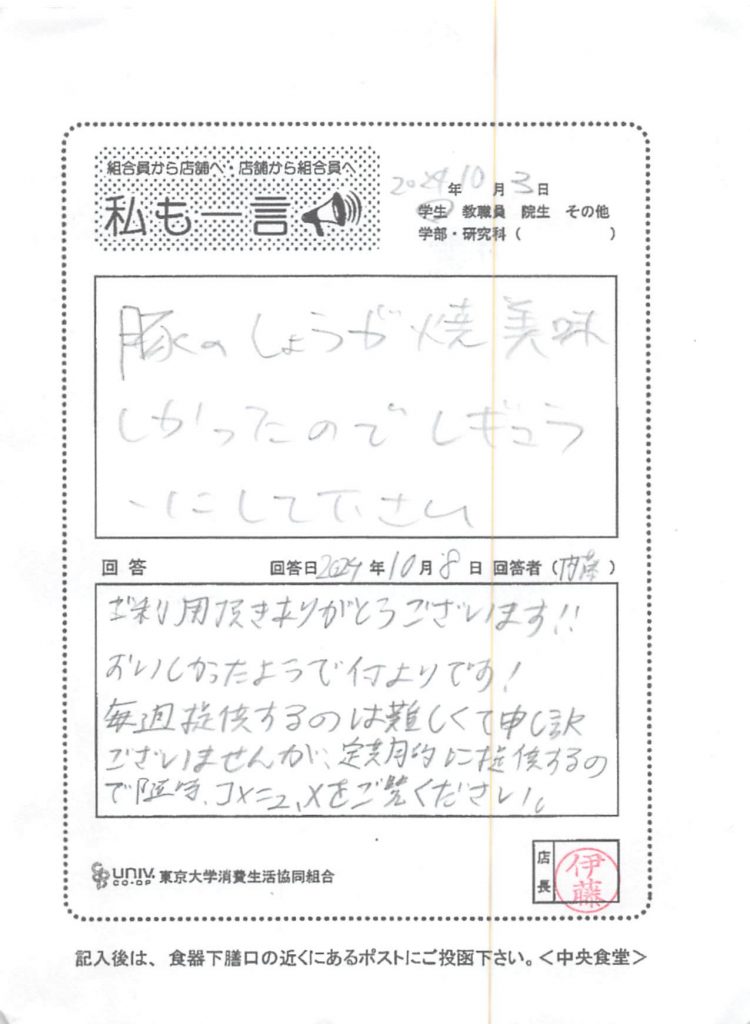 組合員から店舗へ・店舗から組合員へ
私も一言
2024年10月3日
学生 教職員 院生 その他
学部・研究科（ ）
豚のしょうが焼美味
しかったのでレギュラ
ーにして下さい
回答 回答日2024年10月8日 回答者（内藤）
ご利用頂きありがとうございます!!
おいしかったようで何よりです!
毎週提供するのは難しくて申し訳
ございませんが、定期的に提供するの
で随時、メニュメをご覧ください。
UNIV.
CO-OP 東京大学消費生活協同組合
店長 伊藤
記入後は、食器下膳口の近くにあるポストにご投函下さい。＜中央食堂＞